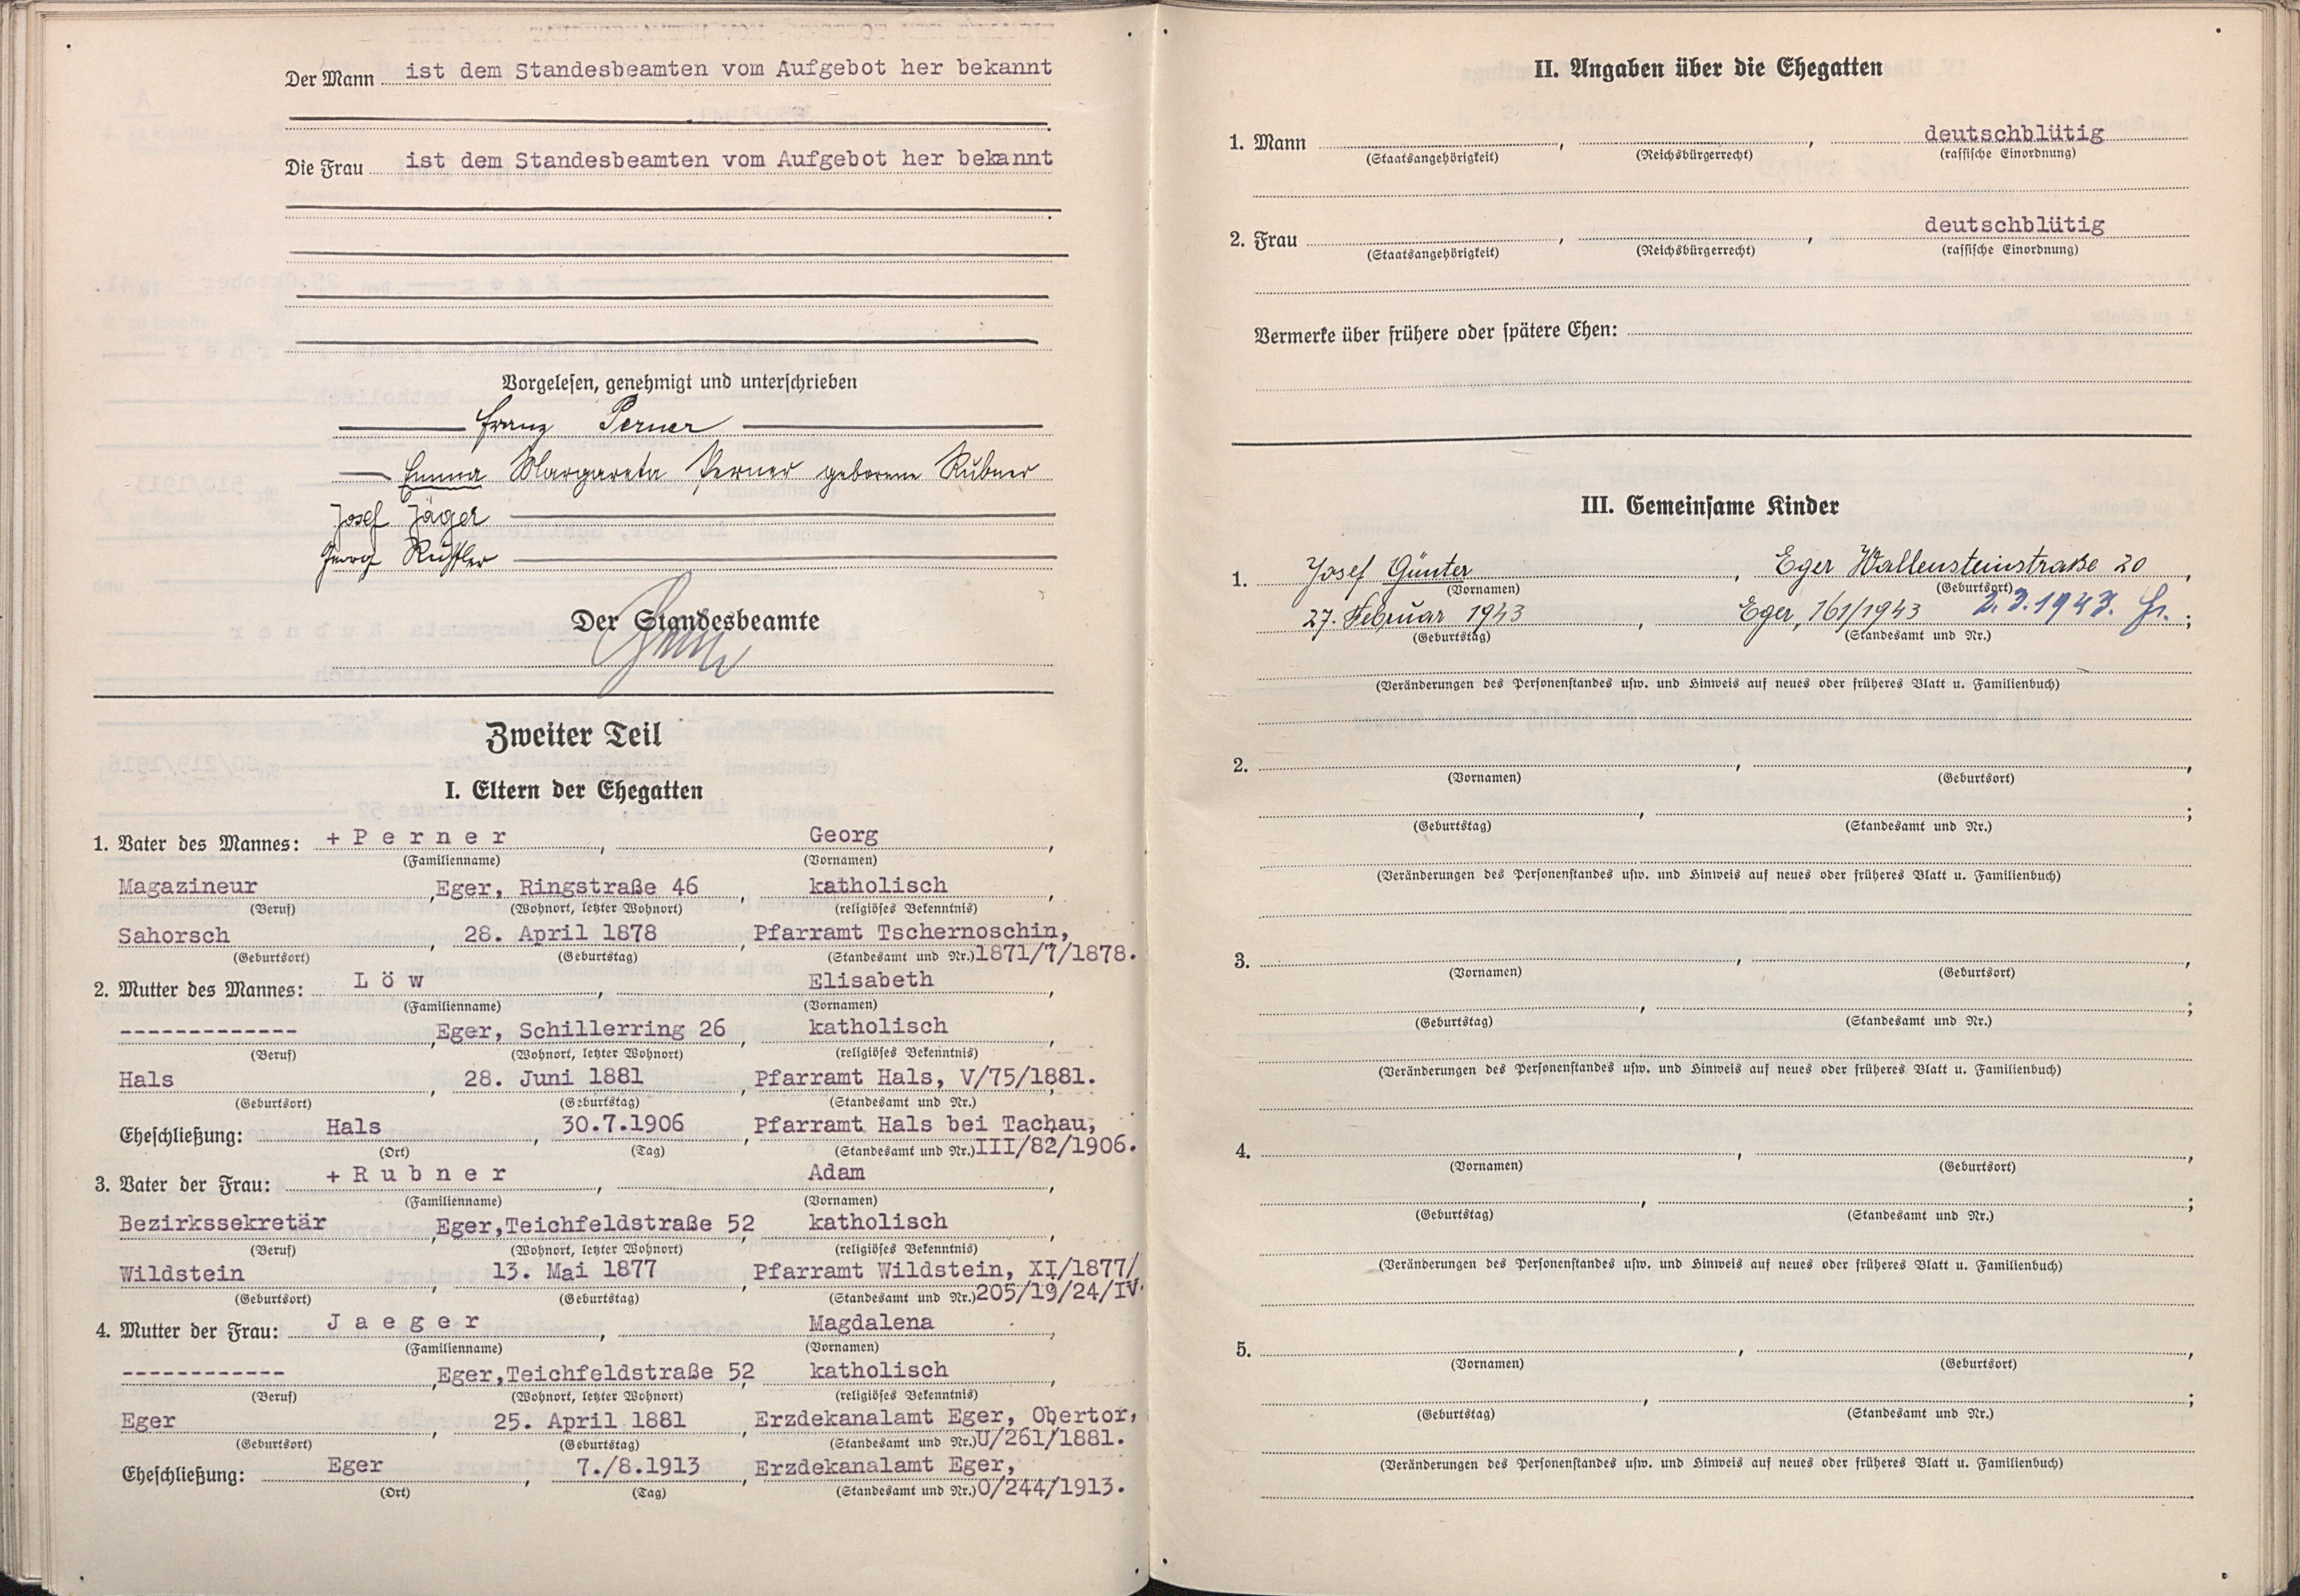 Der Mann ist dem Standesbeamten vom Aufgebot her bekannt
Die Frau ist dem Standesbeamten vom Aufgebot her bekannt
Vorgelesen, genehmigt und unterschrieben
Franz Perner
Emma Margareta Perner geborene Rubner
Josef Jäger
Georg
Der Standesbeamte
Zweiter Teil
I. Eltern der Ehegatten
1. Vater des Mannes: + P e r n e r , Georg ,
(Familienname) (Vornamen)
Magazineur , Eger, Ringstraße 46 , katholisch ,
(Beruf) (Wohnort, letzter Wohnort) (religiöses Bekenntnis)
Sahorsch , 28. April 1878 , Pfarramt Tschernoschin,
(Geburtsort) (Geburtstag) (Standesamt und Nr.) 1871/7/1878.
2. Mutter des Mannes: L ö w , Elisabeth ,
(Familienname) (Vornamen)
------------- , Eger, Schillerring 26 , katholisch ,
(Beruf) (Wohnort, letzter Wohnort) (religiöses Bekenntnis)
Hals , 28. Juni 1881 , Pfarramt Hals, V/75/1881.
(Geburtsort) (Geburtstag) (Standesamt und Nr.)
Eheschließung: Hals , 30.7.1906 , Pfarramt Hals bei Tachau,
(Ort) (Tag) (Standesamt und Nr.) III/82/1906.
3. Vater der Frau: + R u b n e r , Adam ,
(Familienname) (Vornamen)
Bezirkssekretär , Eger,Teichfeldstraße 52 , katholisch ,
(Beruf) (Wohnort, letzter Wohnort) (religiöses Bekenntnis)
Wildstein , 13. Mai 1877 , Pfarramt Wildstein, XI/1877/
(Geburtsort) (Geburtstag) (Standesamt und Nr.) 205/19/24/IV.
4. Mutter der Frau: J a e g e r , Magdalena ,
(Familienname) (Vornamen)
------------ , Eger,Teichfeldstraße 52 , katholisch ,
(Beruf) (Wohnort, letzter Wohnort) (religiöses Bekenntnis)
Eger , 25. April 1881 , Erzdekanalamt Eger, Obertor,
(Geburtsort) (Geburtstag) (Standesamt und Nr.) U/261/1881.
Eheschließung: Eger , 7./8.1913 , Erzdekanalamt Eger,
(Ort) (Tag) (Standesamt und Nr.) O/244/1913.
II. Angaben über die Ehegatten
1. Mann , , deutschblütig
(Staatsangehörigkeit) (Reichsbürgerrecht) (rassische Einordnung)
2. Frau , , deutschblütig
(Staatsangehörigkeit) (Reichsbürgerrecht) (rassische Einordnung)
Vermerke über frühere oder spätere Ehen:
III. Gemeinsame Kinder
1. Josef Günter , Eger Wallensteinstraße 20 ,
(Vornamen) (Geburtsort)
27. Februar 1943 , Eger, 161/1943 2.3.1943. ;
(Geburtstag) (Standesamt und Nr.)
(Veränderungen des Personenstandes usw. und Hinweis auf neues oder früheres Blatt u. Familienbuch)
2. , ,
(Vornamen) (Geburtsort)
, ;
(Geburtstag) (Standesamt und Nr.)
(Veränderungen des Personenstandes usw. und Hinweis auf neues oder früheres Blatt u. Familienbuch)
3. , ,
(Vornamen) (Geburtsort)
, ;
(Geburtstag) (Standesamt und Nr.)
(Veränderungen des Personenstandes usw. und Hinweis auf neues oder früheres Blatt u. Familienbuch)
4. , ,
(Vornamen) (Geburtsort)
, ;
(Geburtstag) (Standesamt und Nr.)
(Veränderungen des Personenstandes usw. und Hinweis auf neues oder früheres Blatt u. Familienbuch)
5. , ,
(Vornamen) (Geburtsort)
, ;
(Geburtstag) (Standesamt und Nr.)
(Veränderungen des Personenstandes usw. und Hinweis auf neues oder früheres Blatt u. Familienbuch)